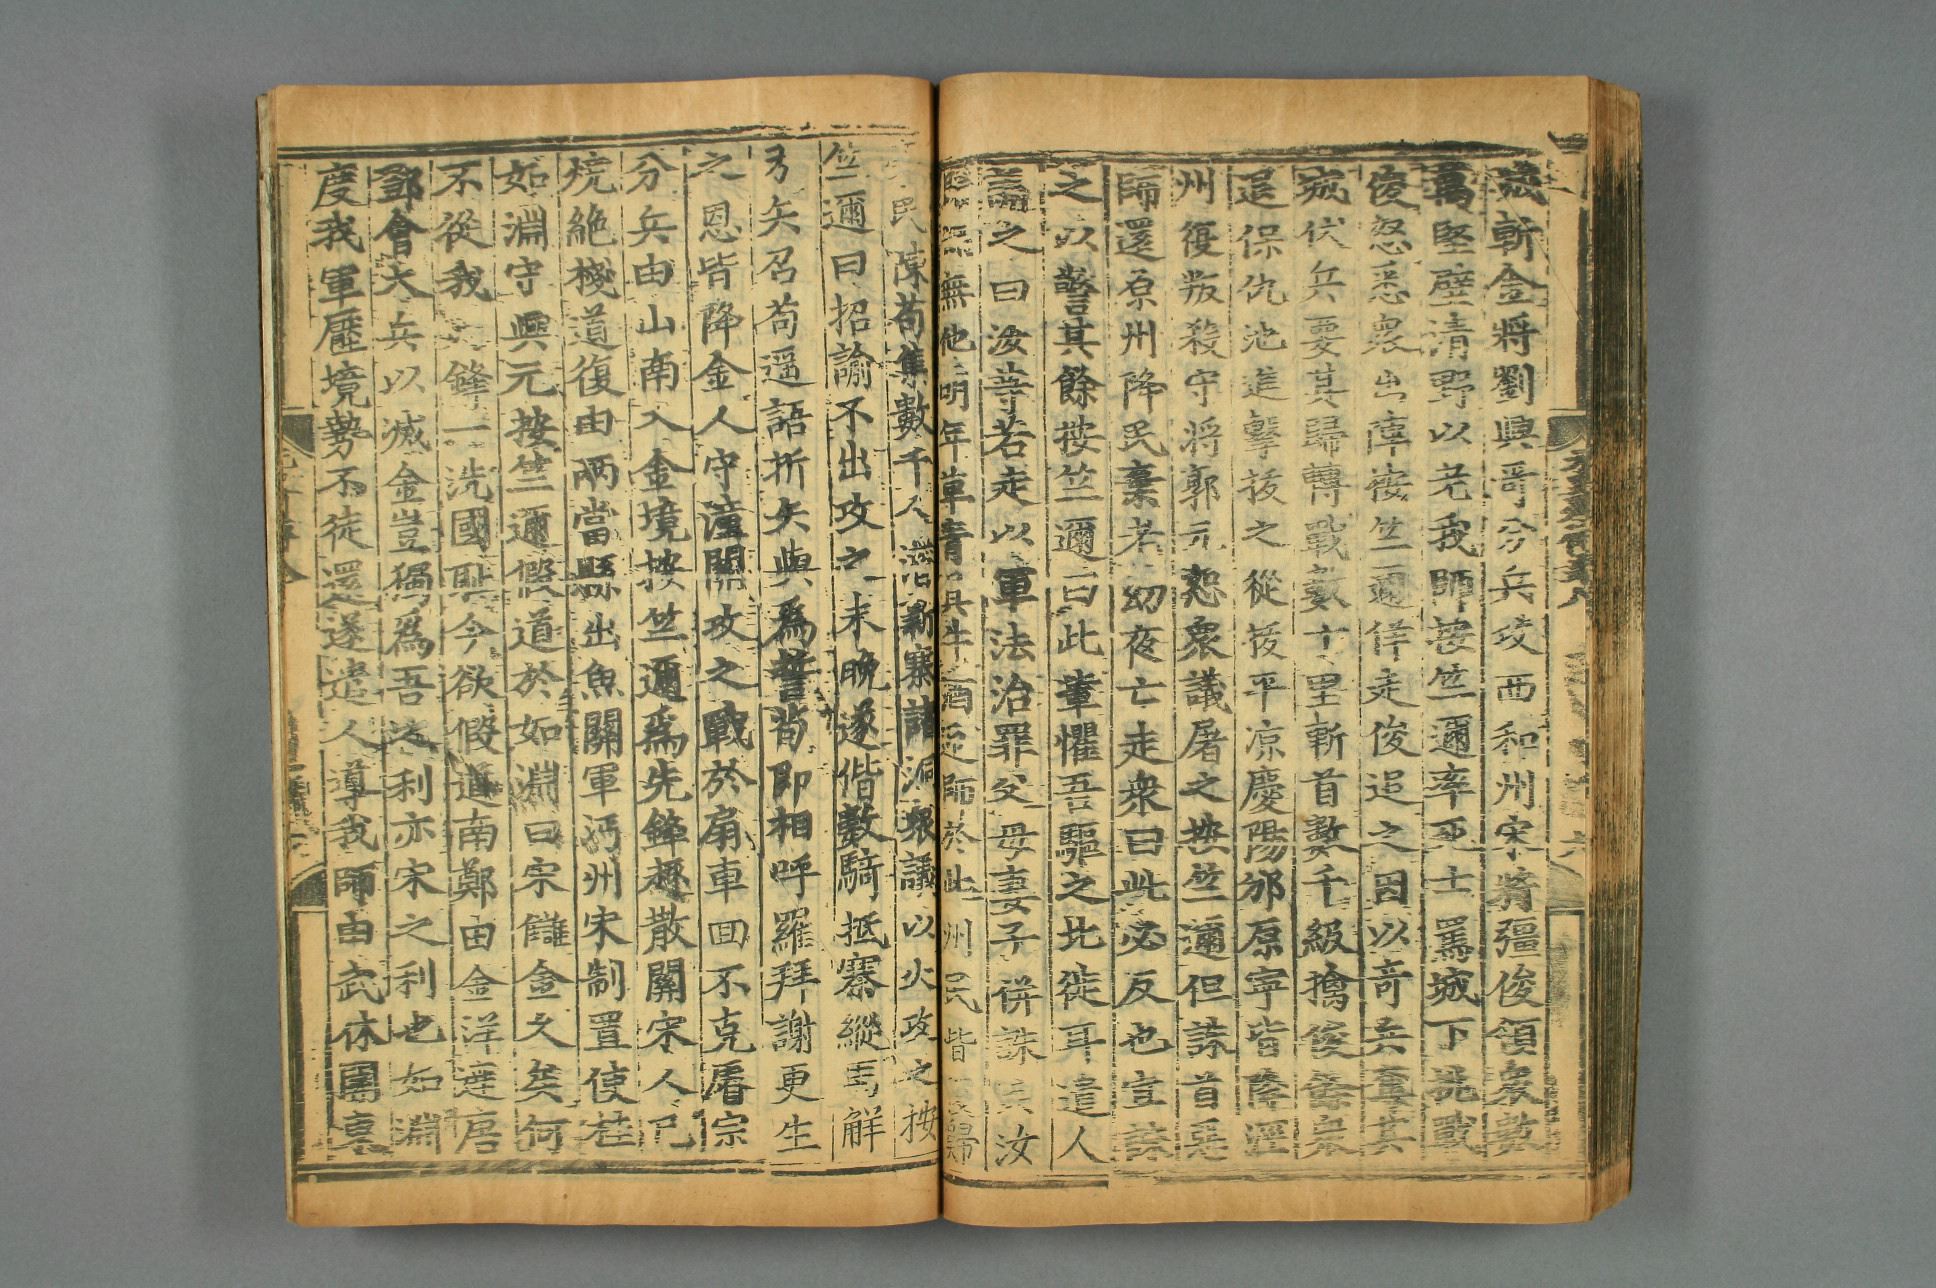 城斬金將劉興哥分兵攻西和州宋將彊俊領衆數
萬堅壁清野以老我師按竺邇率死士罵城下挑戰
俊怒悉衆出陣按竺邇佯走俊追之因以奇兵奪其
城伏兵要其歸轉戰數十里斬首數千級擒俊餘衆
退保仇池進擊拔之從拔平凉慶陽邠原寧皆降涇
州復叛殺守將郭元恕衆議屠之按竺邇但誅首惡
師還原州降民棄老幼夜亡走衆曰此必反也宜誅
之以警其餘按竺邇曰此輩懼吾驅之北徙耳遣人
諭之曰汝等若走以軍法治罪父母妻子併誅矣汝
歸無他明年草青具牛酒迎師於此州民皆復歸
民陳苟集數千人潛新寨諸洞衆議以火攻之按
竺邇曰招諭不出攻之未晩遂偕數騎抵寨縱馬解
弓矢召苟遥語折矢與爲誓苟即相呼羅拜謝更生
之恩皆降金人守潼關攻之戰於扇車回不克屠宗
分兵由山南入金境按竺邇爲先鋒趣散關宋人已
燒絶棧道復由兩當縣出魚關軍沔州宋制置使桂
如淵守興元按竺邇假道於如淵曰宋讎金久矣何
不從我兵鋒一洗國恥今欲假道南鄭由金洋達唐
鄧會大兵以滅金豈獨爲吾之利亦宋之利也如淵
度我軍壓境勢不徒還遂遣人導我師由武休關東